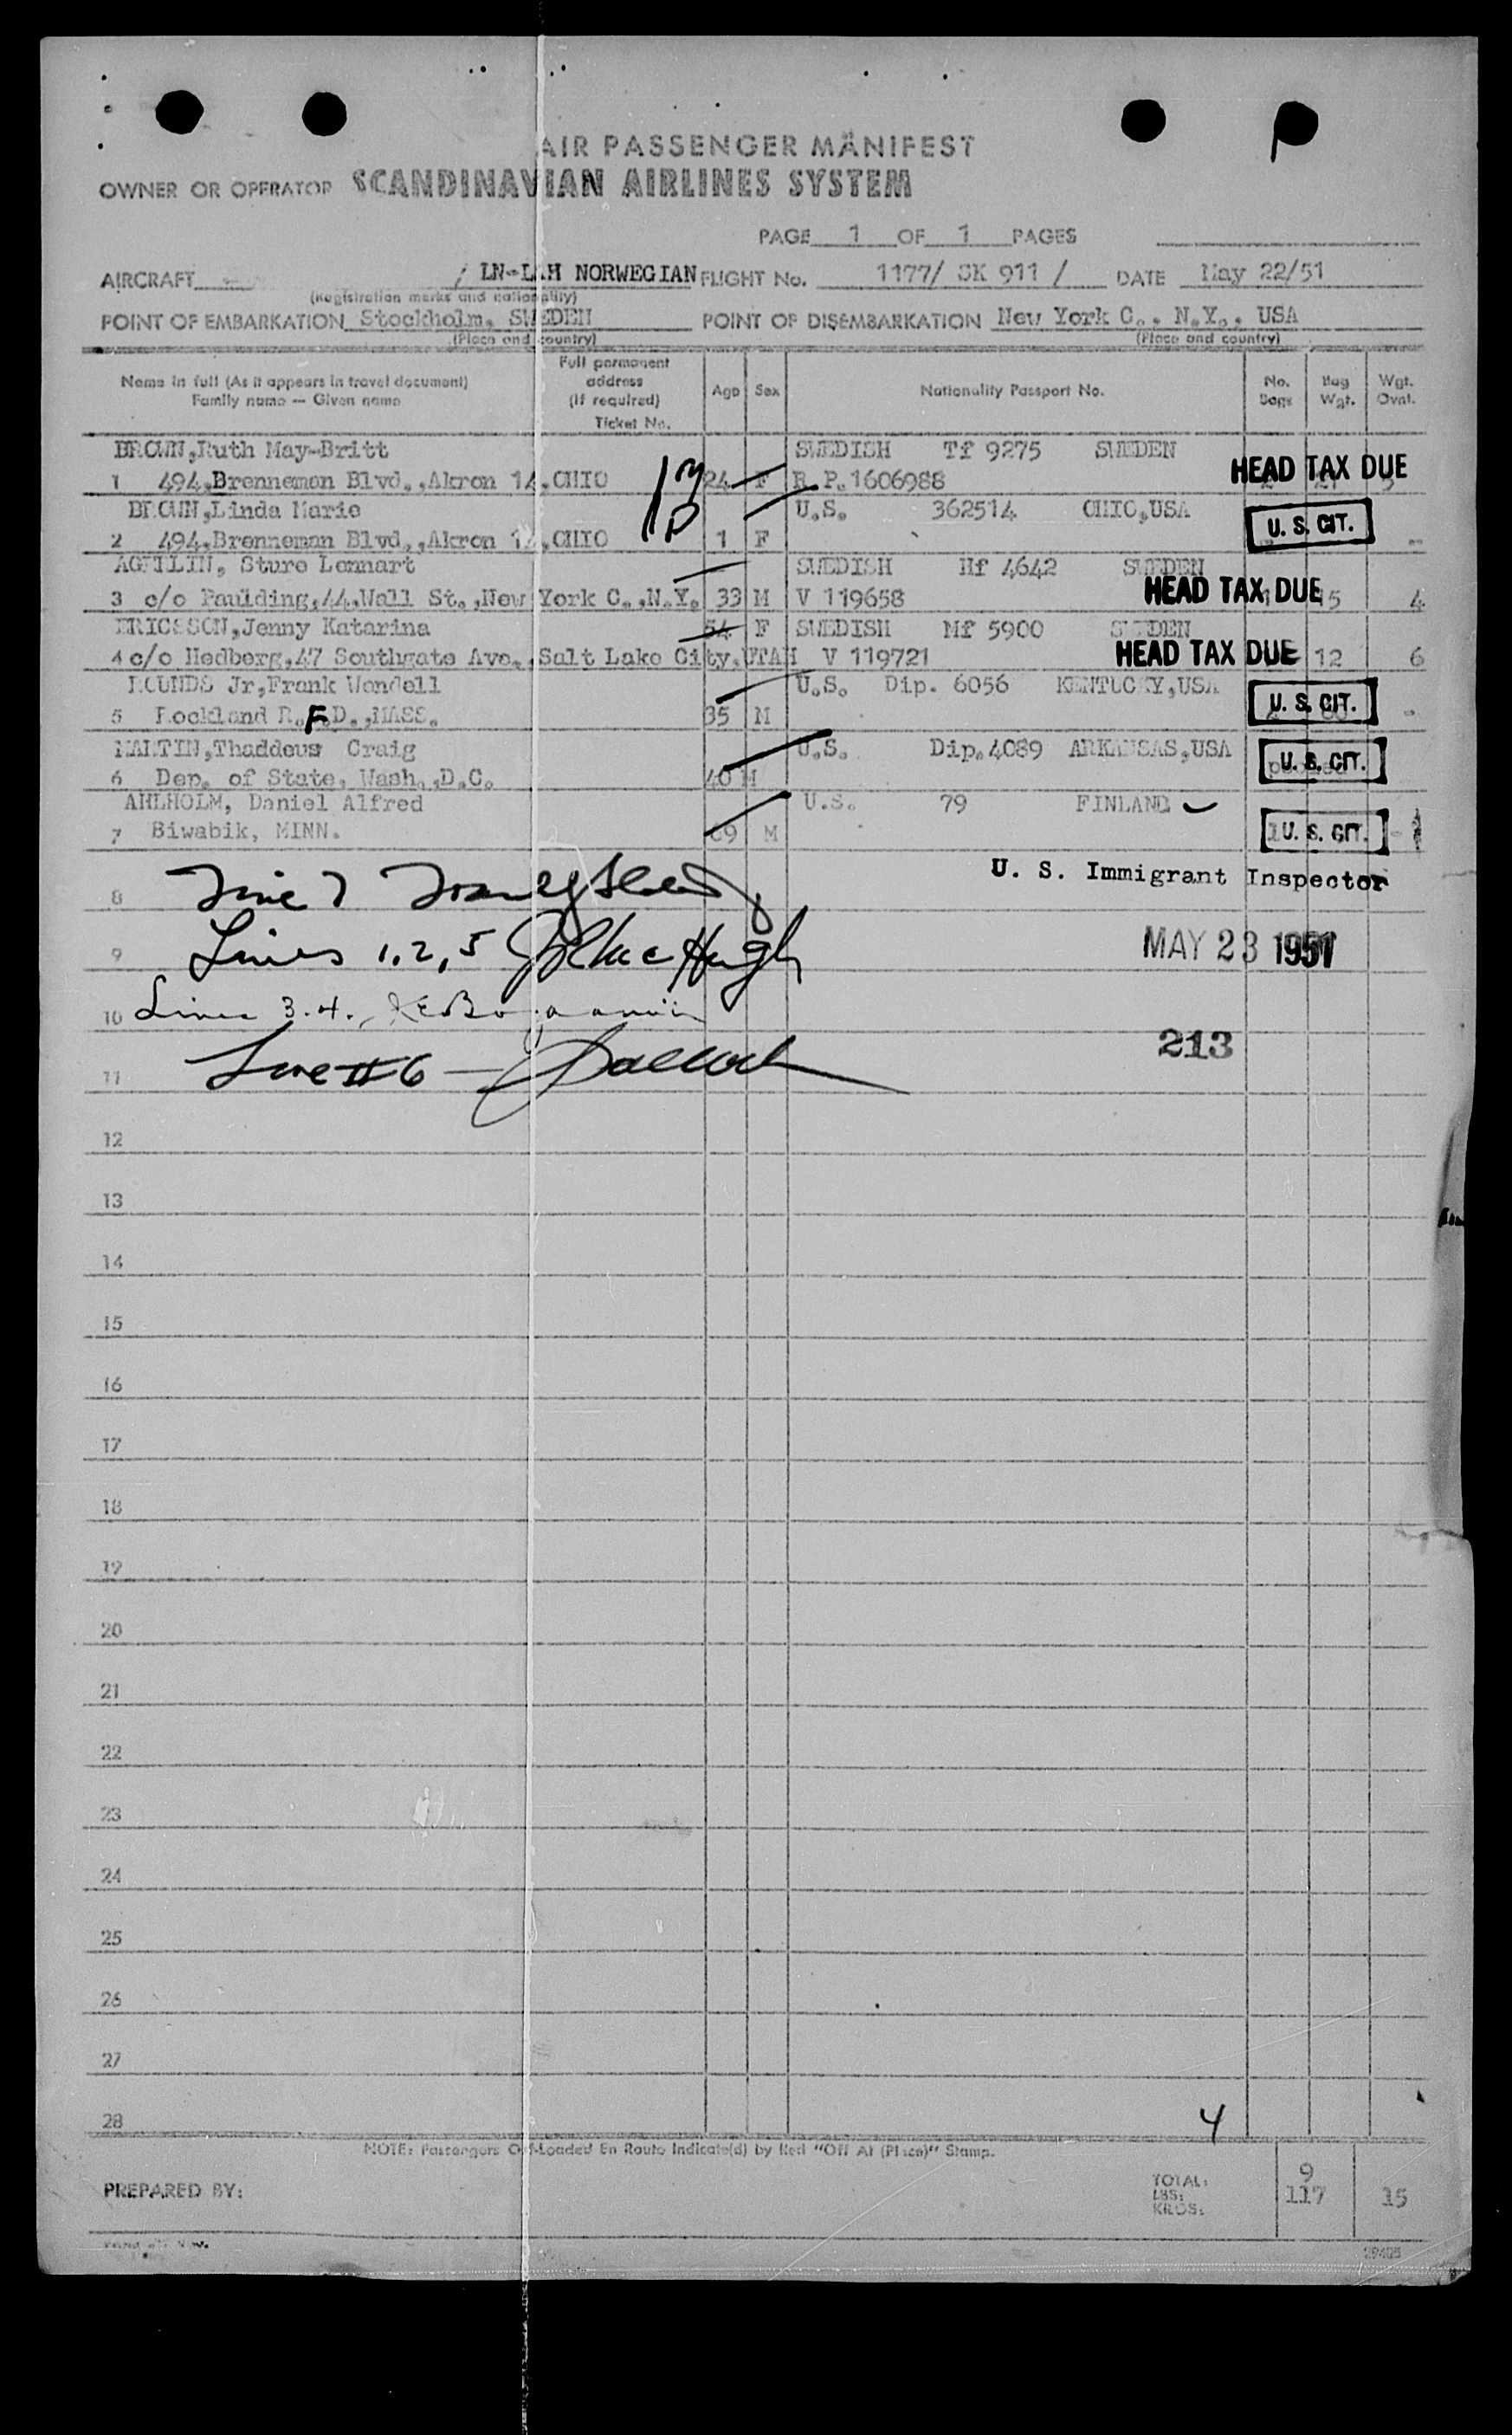 AIR PASSENGER MANIFEST
OWNER OR OPERATOR SCANDINAVIAN AIRLINES SYSTEM
PAGE 1 OF 1 PAGES
AIRCRAFT / LN-LAH NORWEGIAN FLIGHT No. 1177/ SK 911 / DATE May 22/51
(Registration marks and nationality)
POINT OF EMBARKATION Stockholm, SWEDEN POINT OF DISEMBARKATION New York C., N.Y., USA
(Place and country) (Place and country)
Name in full (As it appears in travel document) Family name — Given name
Full permanent address (If required) Ticket No.
Age Sex Nationality Passport No. No. Bags Bag Wgt. Wgt. Ovnt.
BROWN,Ruth May-Britt SWEDISH Tf 9275 SWEDEN
1 494,Brenneman Blvd.,Akron 14,OHIO 24 F R.P.1606988 HEAD TAX DUE
BROWN,Linda Marie U.S. 362514 OHIO,USA
2 494,Brenneman Blvd.,Akron 14,OHIO 1 F U. S. CIT. -
Sture Lennart SWEDISH Hf 4642 SWEDEN
3 c/o Paulding,44,Wall St.,New York C.,N.Y. 33 M V 119658 HEAD TAX DUE 15 4
ERICSSON,Jenny Katarina 54 F SWEDISH Mf 5900 SWEDEN
4 c/o Hedberg,47 Southgate Ave.,Salt Lake City,UTAH V 119721 HEAD TAX DUE 12 6
ROUNDS Jr,Frank Wendell U.S. Dip. 6056 KENTUCKY,USA
5 Rockland R.F.D.,MASS. 35 M U. S. CIT. -
MARTIN,Thaddeus Craig U.S. Dip.4089 ARKANSAS,USA
6 Dep. of State, Wash.,D.C. 40 M U. S. CIT.
AHLHOLM, Daniel Alfred U.S. 79 FINLAND
7 Biwabik, MINN. 69 M U. S. CIT.
U. S. Immigrant Inspector
8 Line 7
9 Lines 1,2,5 MAY 23 1951
10 Lines 3.4.
213
11 Line #6 —
12
13
14
15
16
17
18
19
20
21
22
23
24
25
26
27
28 4
NOTE: Passengers Off-Loaded En Route Indicate(d) by Red "Off At (Place)" Stamp.
PREPARED BY:
TOTAL: 9
LBS: 117 15
KILOS: